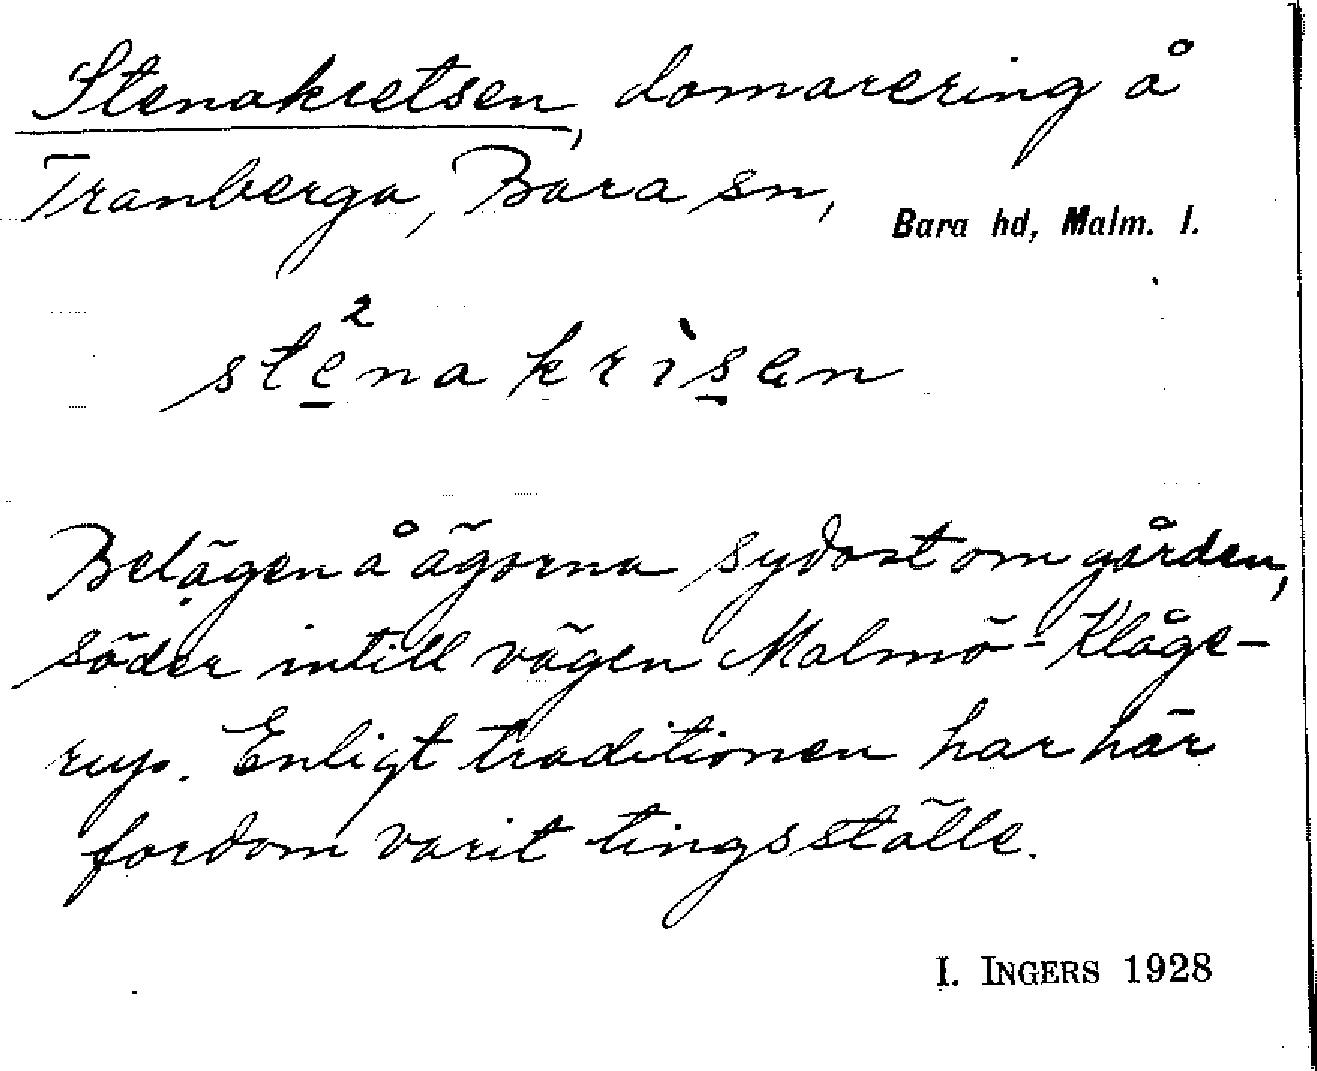 Stenakretsen, domarering å
Tranberga, Bara sn,
Bara hd, Malm. l.
stena krìsen
Belägen å ägorna sydost om gården,
söder intill vägen Malmö-Klåge-
rup. Enligt traditionen har här
fordom varit tingsställe.
I. INGERS 1928